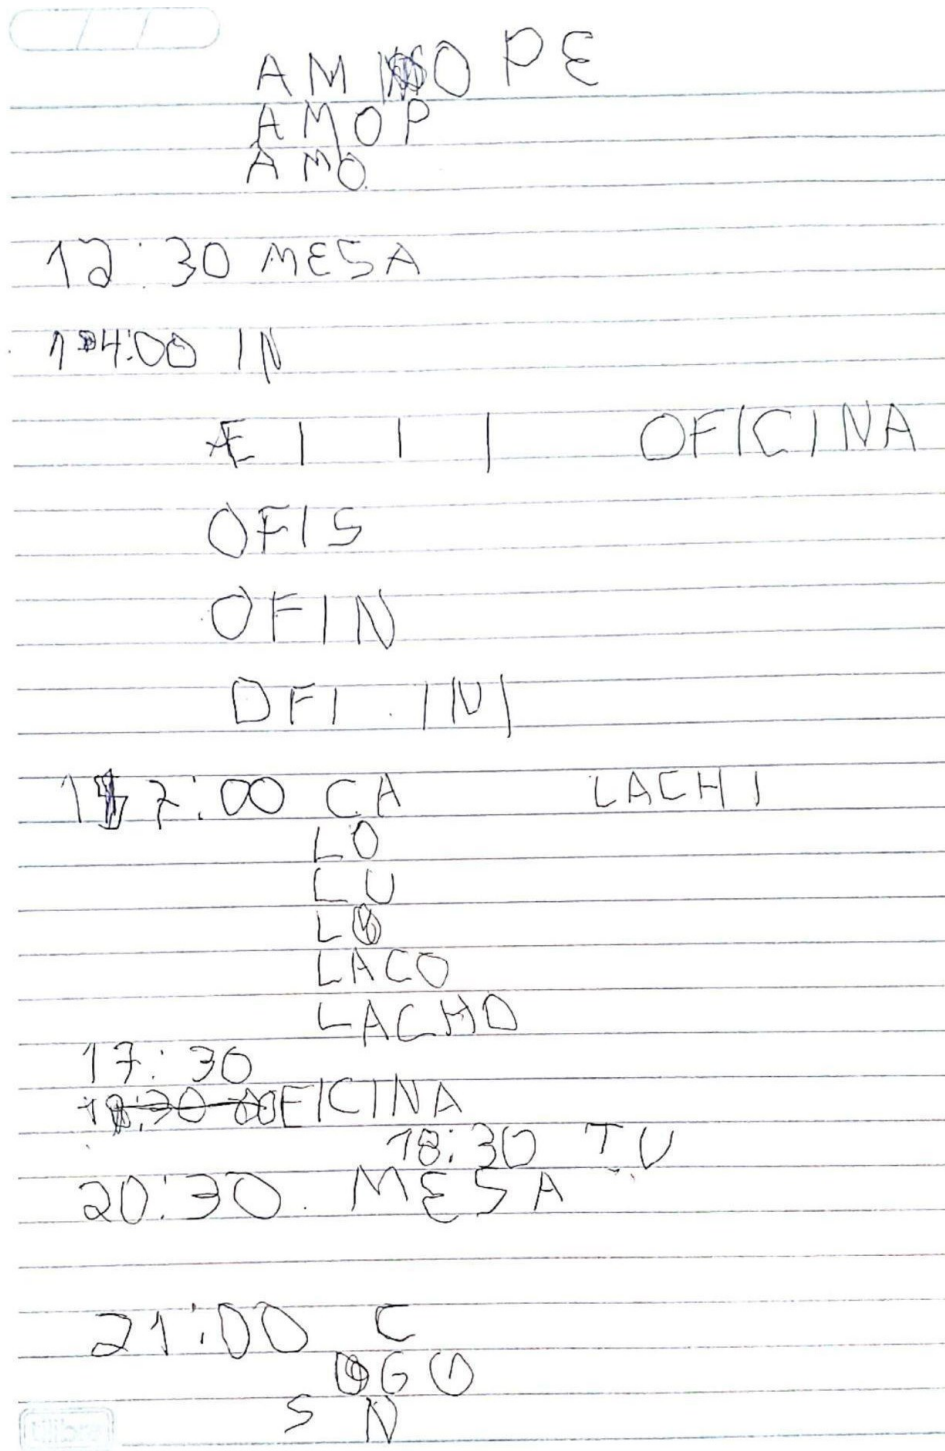 AM O PE
AMOP
AMO
12:30 MESA
14:00 IN
Æ I I I OFICINA
OFIS
OFIN
OFI . INI
17:00 CA LACHI
LO
LU
LO
LACO
LACHO
17:30
18:30 OFICINA
18:30 TV
20:30. MESA
21:00 C
OGO
S N
tilibra